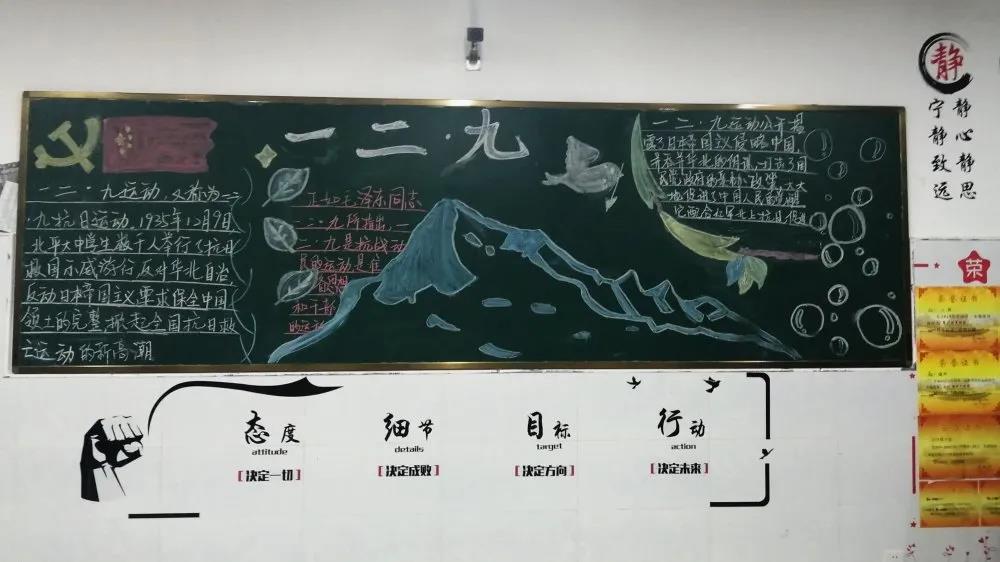 一二·九
一二·九运动，又称为一二
·九抗日运动，1935年12月9日
北平大中学生数千人举行了抗日
救国示威游行，反对华北自治，
反动日本帝国主义要求保全中国
领土的完整掀起全国抗日救
亡运动的新高潮
正如毛泽东同志
一二·九所指出，一
二·九是抗战动
员的运动是准
思想
和干部
的运动
一二·九运动公开揭
露了日本帝国主义侵略中国，
并吞华北的
国人民的
静
静心静思
宁静致远
荣
荣誉证书
荣誉证书
态度
attitude
[决定一切]
细节
details
[决定成败]
目标
target
[决定方向]
行动
action
[决定未来]